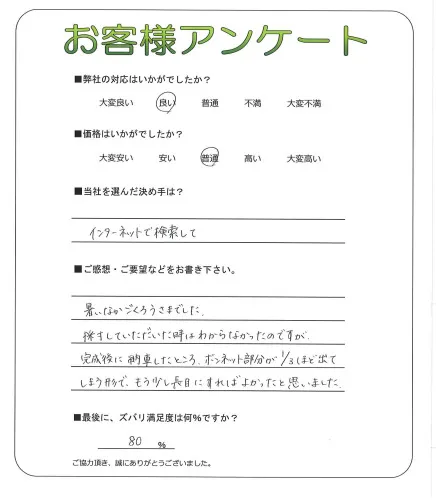 お客様アンケート
■弊社の対応はいかがでしたか？
大変良い 良い 普通 不満 大変不満
■価格はいかがでしたか？
大変安い 安い 普通 高い 大変高い
■当社を選んだ決め手は？
インターネットで検索して
■ご感想・ご要望などをお書き下さい。
暑いなかごくろうさまでした。
稼きしていただいた時はわからなかったのですが、
完成後に納車したところ、ボンネット部分が1/3ほど出て
しまう形で、もう少し長目にすればよかったと思いました。
■最後に、ズバリ満足度は何％ですか？
80 %
ご協力頂き、誠にありがとうございました。